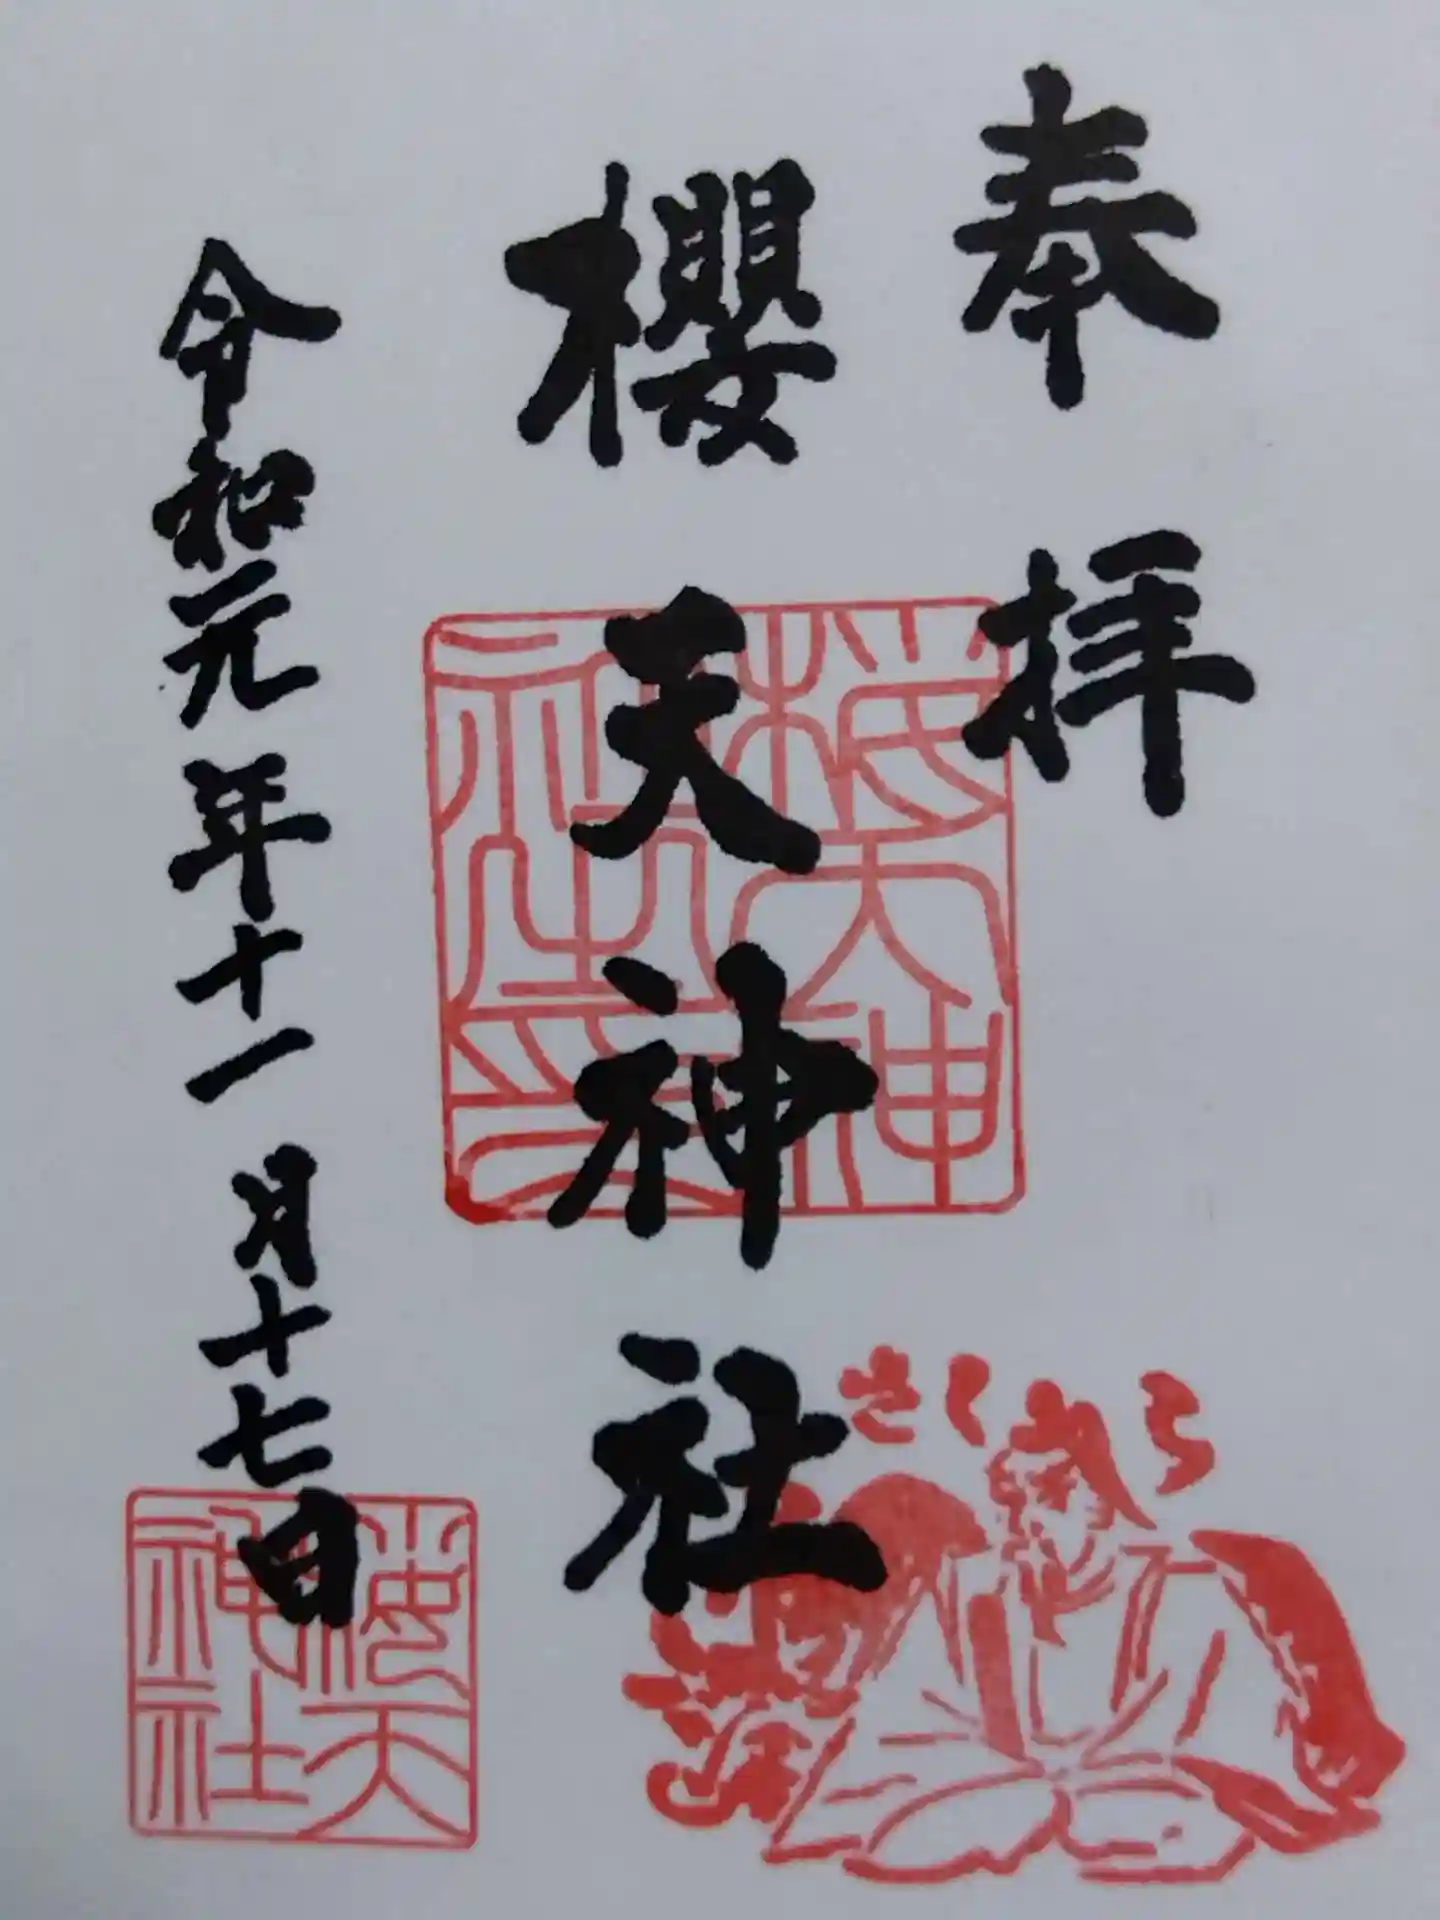 奉拝
櫻天神社
令和元年十一月十七日
さくら
天神
社
天
神社